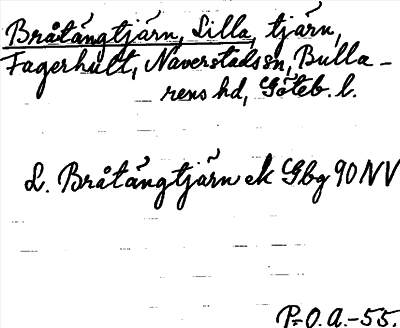 Bråtängtjärn, Lilla, tjärn,
Fagerhult, Naverstads sn, Bulla-
rens hd, Göteb. l.
L. Bråtängtjärn ek Gbg 90 NV
P.O.A.-55.